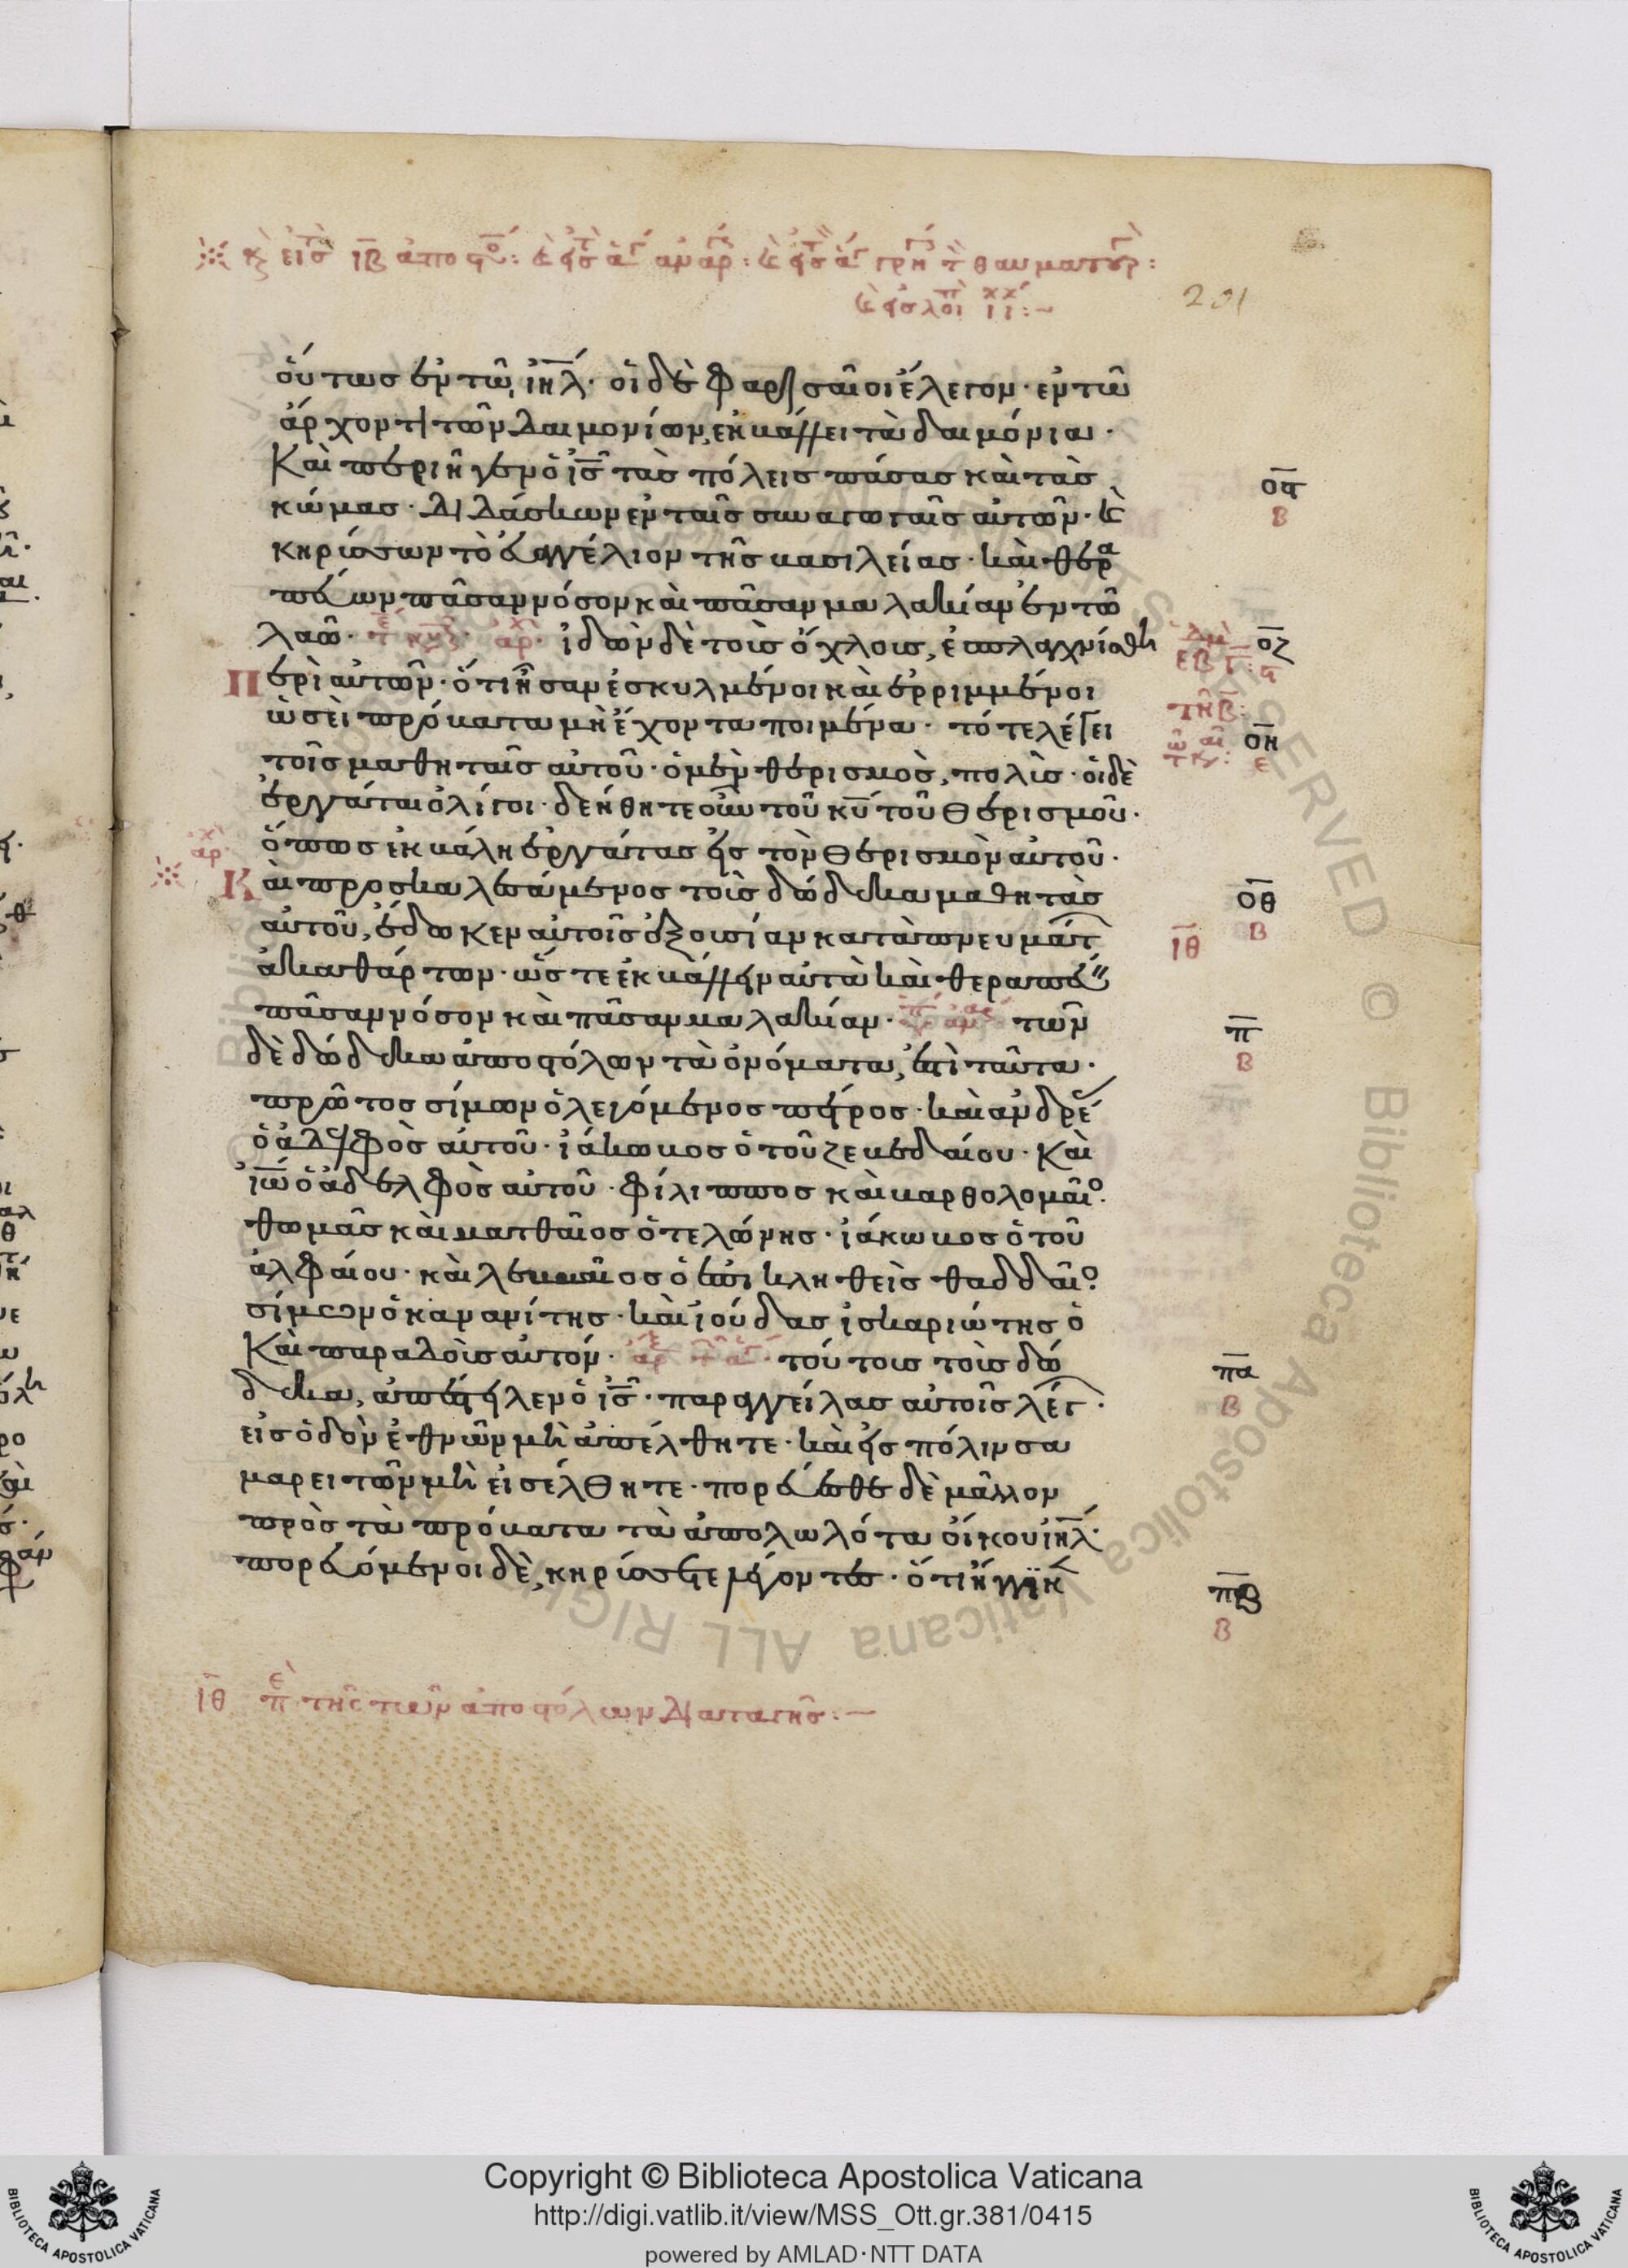 201
οὕτως ἐν τῶ ἰηλ· οἱ δὲ φαρισαῖοι ἔλεγον· ἐν τῶ
ἄρχοντι τῶν δαιμονίων, ἐκβάλλει τὰ δαιμόνια·
Καὶ περιῆγεν ὁ ισ τὰς πόλεις πάσας καὶ τὰς
κώμας· διδάσκων ἐν ταῖς συναγωγαῖς αὐτῶν· καὶ
κηρύσσων τὸ εὐαγγέλιον τῆς βασιλείας· καὶ θερα
πεύων πᾶσαν νόσον καὶ πᾶσαν μαλακίαν ἐν τῶ
λαῶ· ἰδὼν δὲ τοὺς ὄχλους, ἐσπλαγχνίσθη
Περὶ αὐτῶν· ὅτι ἦσαν ἐσκυλμένοι καὶ ἐρριμμένοι
ὡσεὶ πρόβατα μὴ ἔχοντα ποιμένα· τότε λέγει
τοῖς μαθηταῖς αὐτοῦ· ὁ μὲν θερισμὸς, πολὺς· οἱ δὲ
ἐργάται ὀλίγοι· δεήθητε οὖν τοῦ κυ τοῦ θερισμοῦ·
ὅπως ἐκβάλη ἐργάτας εἰς τὸν θερισμὸν αὐτοῦ·
Καὶ προσκαλεσάμενος τοὺς δώδεκα μαθητὰς
αὐτοῦ, ἔδωκεν αὐτοῖς ἐξουσίαν κατὰ πνευμάτ
ἀκαθάρτων· ὥστε ἐκβάλλειν αὐτὰ καὶ θεραπεύ
πᾶσαν νόσον καὶ πᾶσαν μαλακίαν· τῶν
δὲ δώδεκα ἀποστόλων τὰ ὀνόματα, ἐστὶ ταῦτα·
πρῶτος σίμων ὁ λεγόμενος πέτρος· καὶ ἀνδρέ
ὁ ἀδελφὸς αὐτοῦ· ἰάκωβος ὁ τοῦ ζεβεδαίου· Καὶ
ἰω ὁ ἀδελφὸς αὐτοῦ· φίλιππος καὶ βαρθολομαῖο·
θωμᾶς καὶ ματθαῖος ὁ τελώνης· ἰάκωβος ὁ τοῦ
ἀλφαίου· καὶ λεββαῖος ὁ ἐπικληθεὶς θαδδαῖο·
σίμων ὁ κανανίτης· καὶ ἰούδας ἰσκαριώτης ὁ
Καὶ παραδοὺς αὐτόν· τούτους τοὺς δώ
δεκα, ἀπέστειλεν ὁ ισ· παραγγείλας αὐτοῖς λέγ·
εἰς ὁδὸν ἐθνῶν μὴ ἀπέλθητε· καὶ εἰς πόλιν σα
μαρειτῶν μὴ εἰσέλθητε· πορεύεσθε δὲ μᾶλλον
πρὸς τὰ πρόβατα τὰ ἀπολωλότα οἴκου ιηλ·
πορευόμενοι δὲ, κηρύσσετε λέγοντες· ὅτι ἤγγικ
ος
β
οζ
οη
ε
οθ
β
ιθ
π
β
πα
β
πβ
β
ιθ πε τῆς τῶν ἀποστόλων διαταγῆς:—
Copyright © Biblioteca Apostolica Vaticana
http://digi.vatlib.it/view/MSS_Ott.gr.381/0415
powered by AMLAD·NTT DATA
BIBLIOTECA APOSTOLICA VATICANA
BIBLIOTECA APOSTOLICA VATICANA